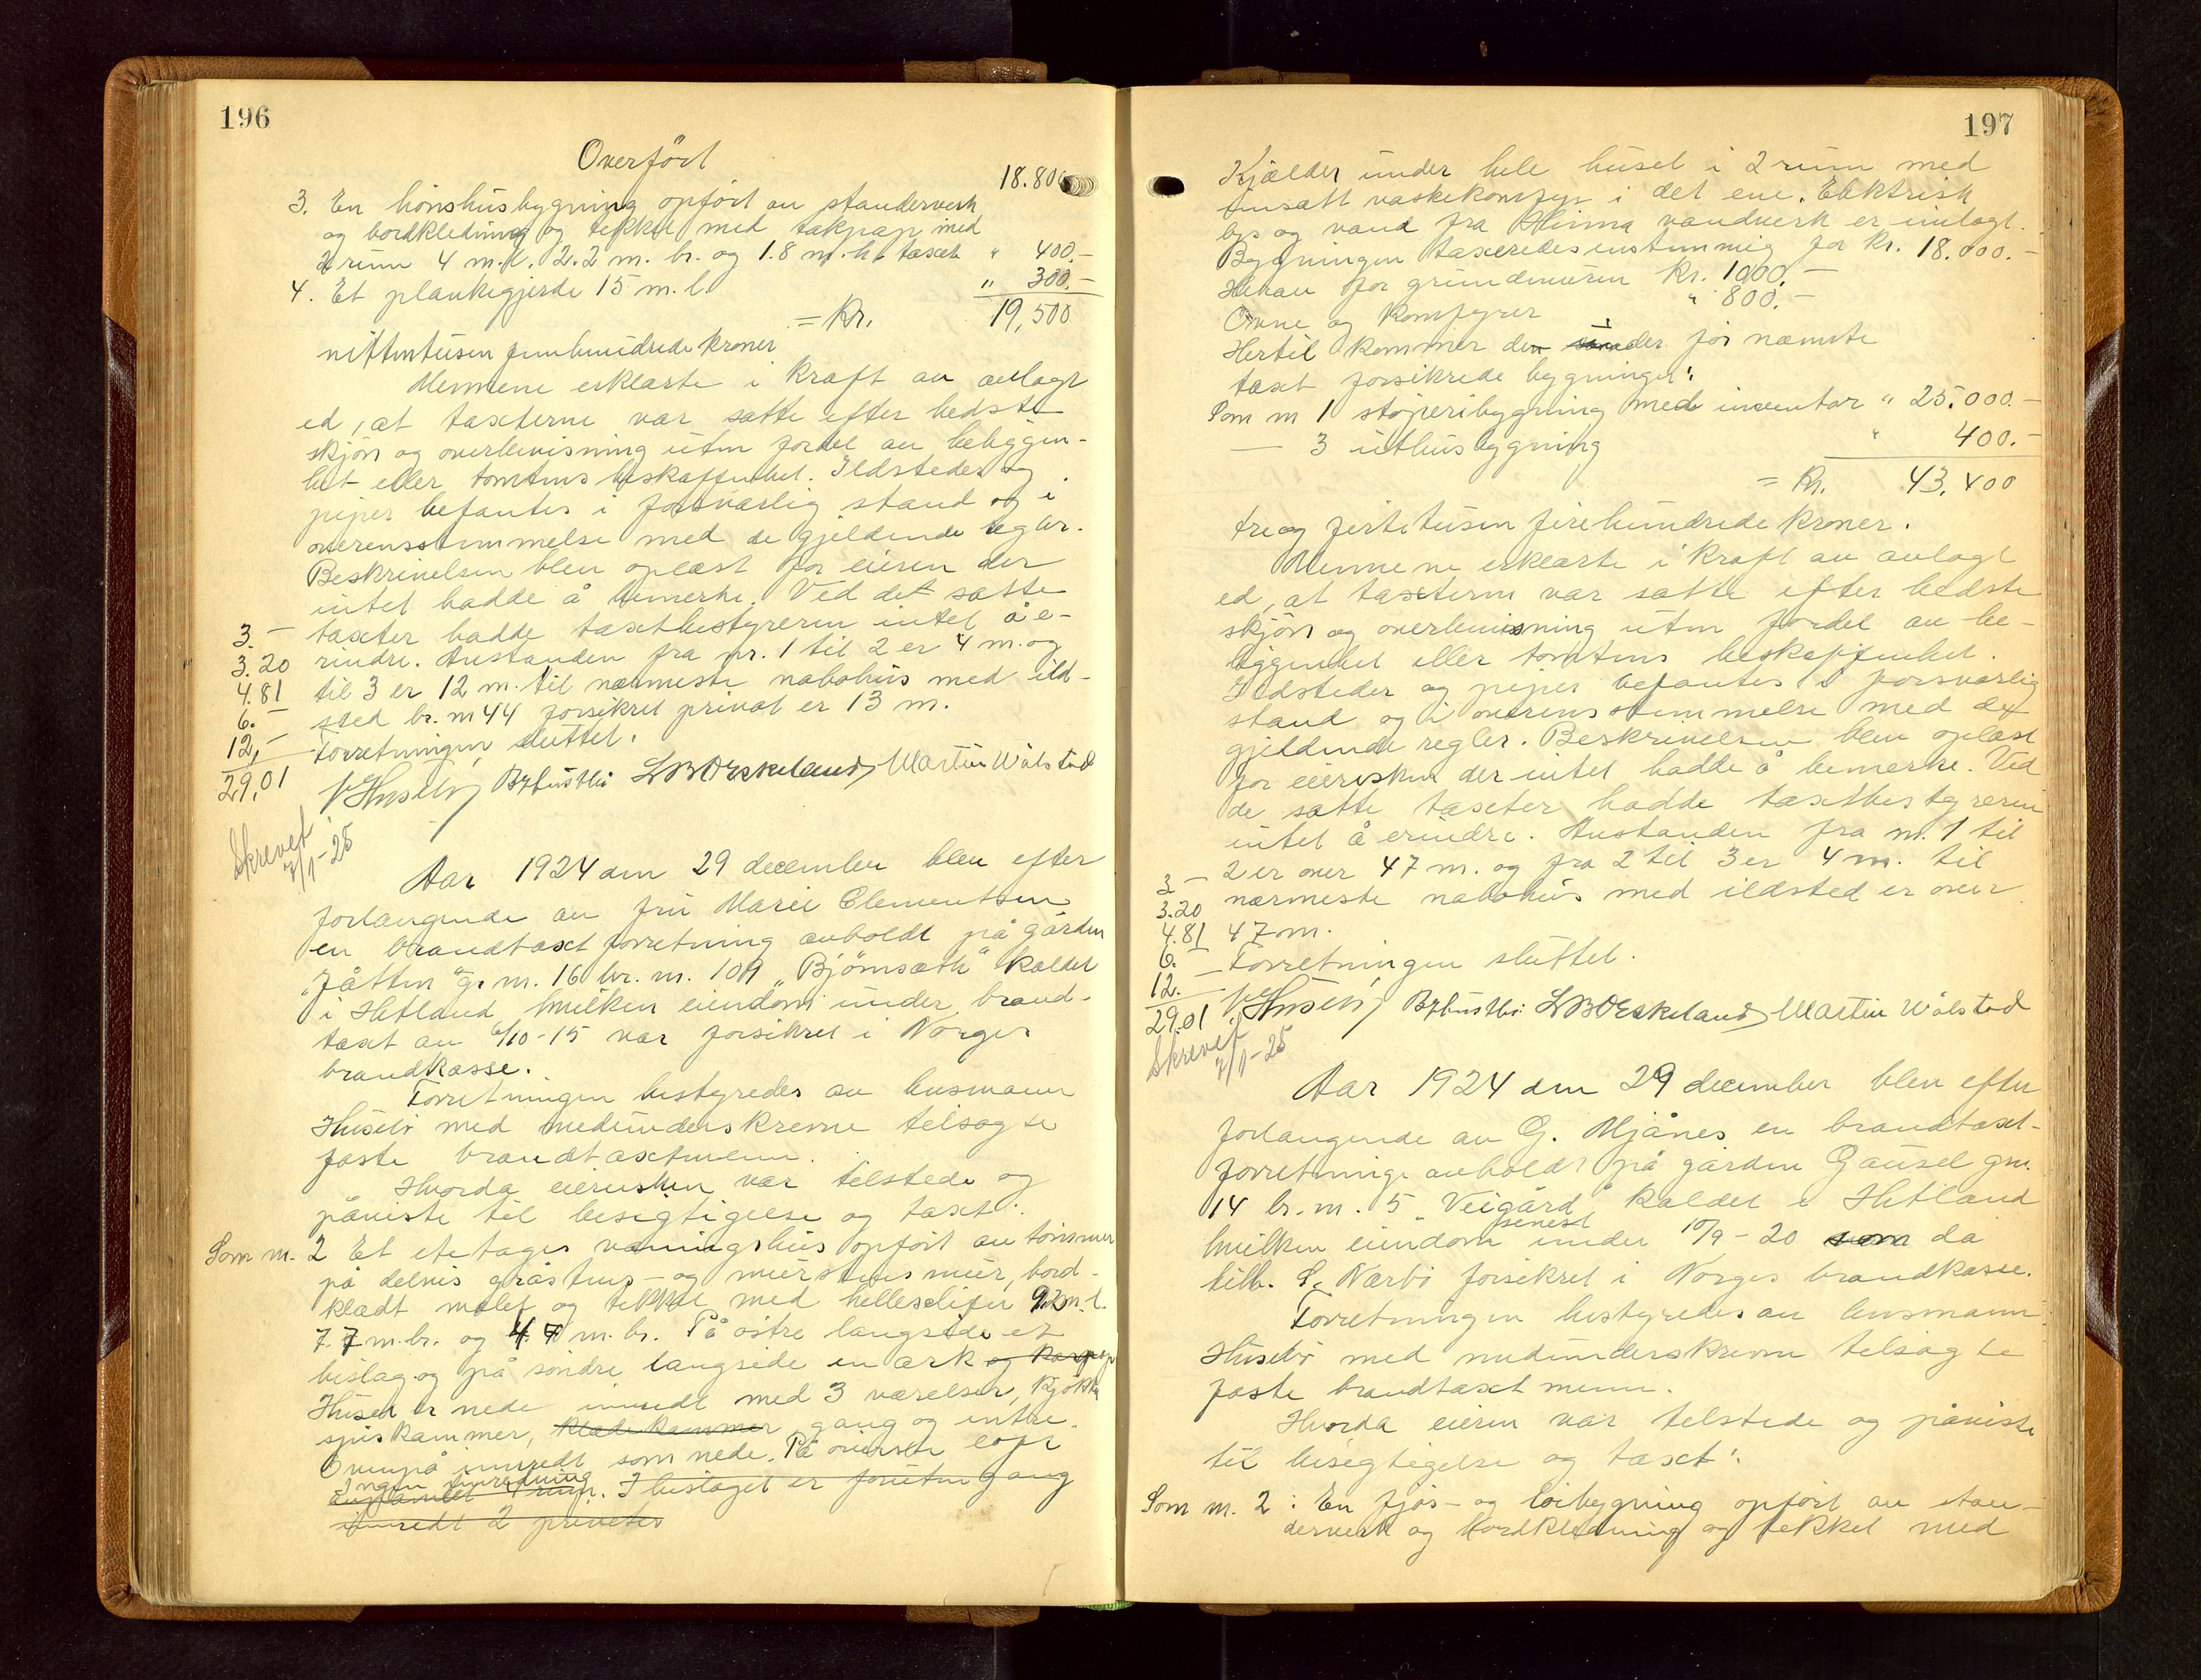 196
Overført
18.80
3. En hönshusbygning opført au standerverk
og bordkledning og tekket med takpap med
2 rum 4 m.l. 2.2 m. br. og 1.8 m. h. taxet " 400.-
4. Et plankegjerde 15 m. l. " 300.-
= Kr. 19,500
nittentusen femhundrede kroner
Mennene erklærte i kraft av avlagt
ed, at taxterne var satte efter bedste
skjön og overbevisning uten fordel av beliggen-
het eller tomtens beskaffenhet. Ildsteder og
piper befantes i forsvarlig stand og i
overensstemmelse med de gjeldende regler.
Beskrivelsen blev oplæst for eieren der
intet hadde å bemerke. Ved det satte
3.- taxter hadde taxtbestyreren intet å e-
3.20 rindre. Avstanden fra nr. 1 til 2 er 4 m. og
4.81 til 3 er 12 m. til nærmeste nabohus med ild-
6.- sted br. nr 44 forsikret privat er 13 m.
12,- Forretningen sluttet.
29,01 Husebø L B Oeskeland, Martin Wålstad
Skrevet
7/1-25
Aar 1924 den 29 december blev efter
forlangende av fru Marie Clementsen
en brandtaxtforretning avholdt på gården
"Jåtten" g. nr. 16 br. nr. 109 "Bjørnsæth" kaldet
i Hetland, hvilken eiendom under brand-
taxt av 6/10-15 var forsikret i Norges
brandkasse.
Forretningen bestyredes av lensmann
Husebö med medunderskrevne telsagte
faste brandtaxtmenn.
Hvorda eiersken var tilstede og
påviste til besigtigelse og taxt:
Som nr. 2 Et etetages våningshus opført av tømmer
på delvis gråstens- og murstens mur, bord-
klædt malet og tekket med helleskifer 9.2 m. l.
7.7 m. br. og 4.7 m. br. På østre langside et
bislag og på söndre langside en ark og
Huset er nede innredt med 3 værelser, kjøkken
spiskammer, klædekammer gang og entre.
Ovenpå innredt som nede. På øverste loft
Ingen innredning
I bislaget er foruten gang
innredt 2 priveter
197
Kjælder under hele huset i 2 rum med
innsatt vaskekomfyr i det ene. Elektrisk
lys og vand fra Hinna vandverk er innlagt.
Bygningen taxeredes enstemmig for kr. 18.000.-
Herav for grundmuren kr. 1000.-
Ovne og komfyrer " 800.-
Hertil kommer den under før nævnte
taxt forsikrede bygninger:
Som nr 1 støperibygning med inventar " 25.000.-
— 3 uthusbygning " 400.-
= Kr. 43.400
tre og førtitusen firehundrede kroner.
Mennene erklærte i kraft av avlagt
ed, at taxterne var satte efter bedste
skjön og overbevisning uten fordel av be-
liggenhet eller tomtens beskaffenhet.
Ildsteder og piper befantes i forsvarlig
stand og i overensstemmelse med de
gjeldende regler. Beskrivelsen blev oplæst
for eiersken der intet hadde å bemerke. Ved
de satte taxter hadde taxtbestyreren
intet å erindre. Avstanden fra nr. 1 til
3 - 2 er over 47 m. og fra 2 til 3 er 4 m. til
3.20 nærmeste nabohus med ildsted er over
4.81 47 m.
6.- Forretningen sluttet.
12.-
29.01 Husebø L B Oeskeland, Martin Wålstad
Skrevet
7/1-25
Aar 1924 den 29 december blev efter
forlangende av G. Mjånes en brandtaxt-
forretning avholdt på gården Gausel gnr.
14 br. nr. 5 "Veigård" kaldet i Hetland
hvilken eiendom senest under 10/9-20 som da
tilh. S. Nærbö forsikret i Norges brandkasse.
Forretningen bestyredes av lensmann
Husebö med medunderskrevne telsagte
faste brandtaxtmenn.
Hvorda eieren var telstede og påviste
til besigtigelse og taxt:
Som nr. 2: En fjøs- og löebygning opført av stan-
derverk og bordkledning og tekket med